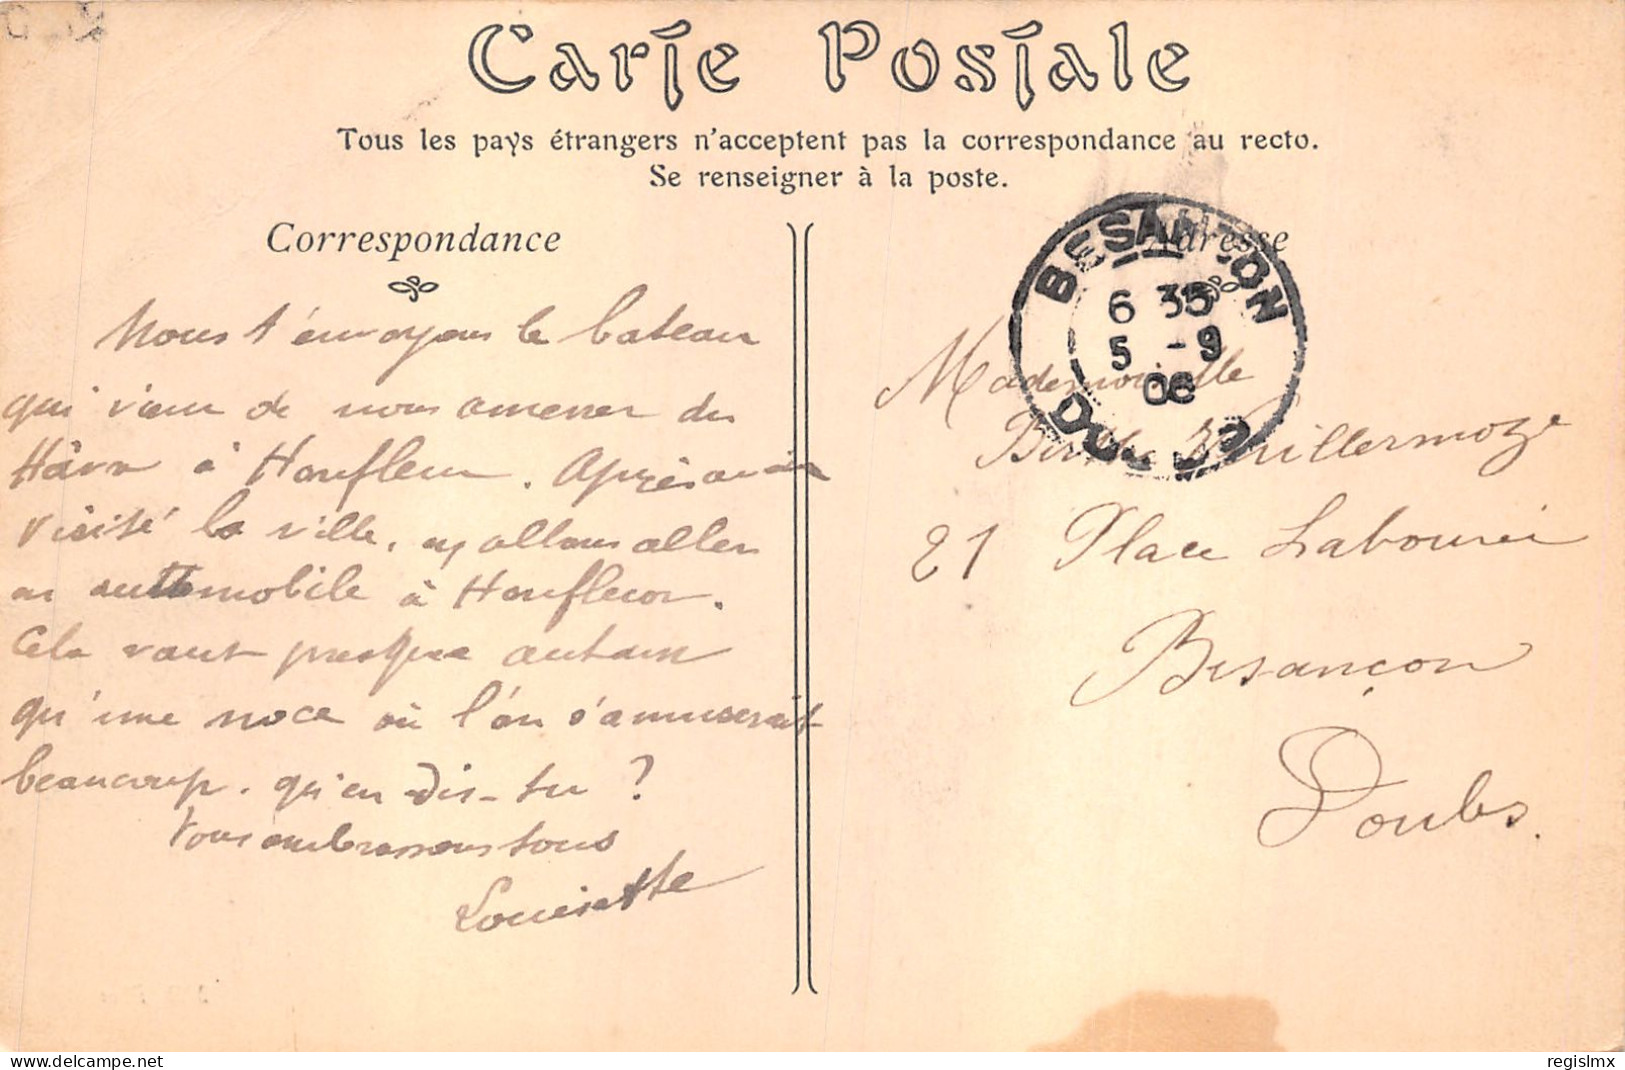 Carte Postale
Tous les pays étrangers n'acceptent pas la correspondance au recto.
Se renseigner à la poste.
Correspondance
Nous t'envoyons le bateau
qui vien de nous amener du
Hâvre à Honfleur. Après avoir
visité la ville, ns allons aller
en automobile à Honfleur.
Cela vaut presque autant
qu'une noce où l'on s'amuserait
beaucoup. qu'en dis-tu ?
Vous embrassons tous
Louisette
Adresse
BESANÇON
6 35
5 -9
06
DOUBS
Mademoiselle
Berthe Vuillermoze
21 Place Labourée
Besançon
Doubs.
Delcampe.net
regislmx